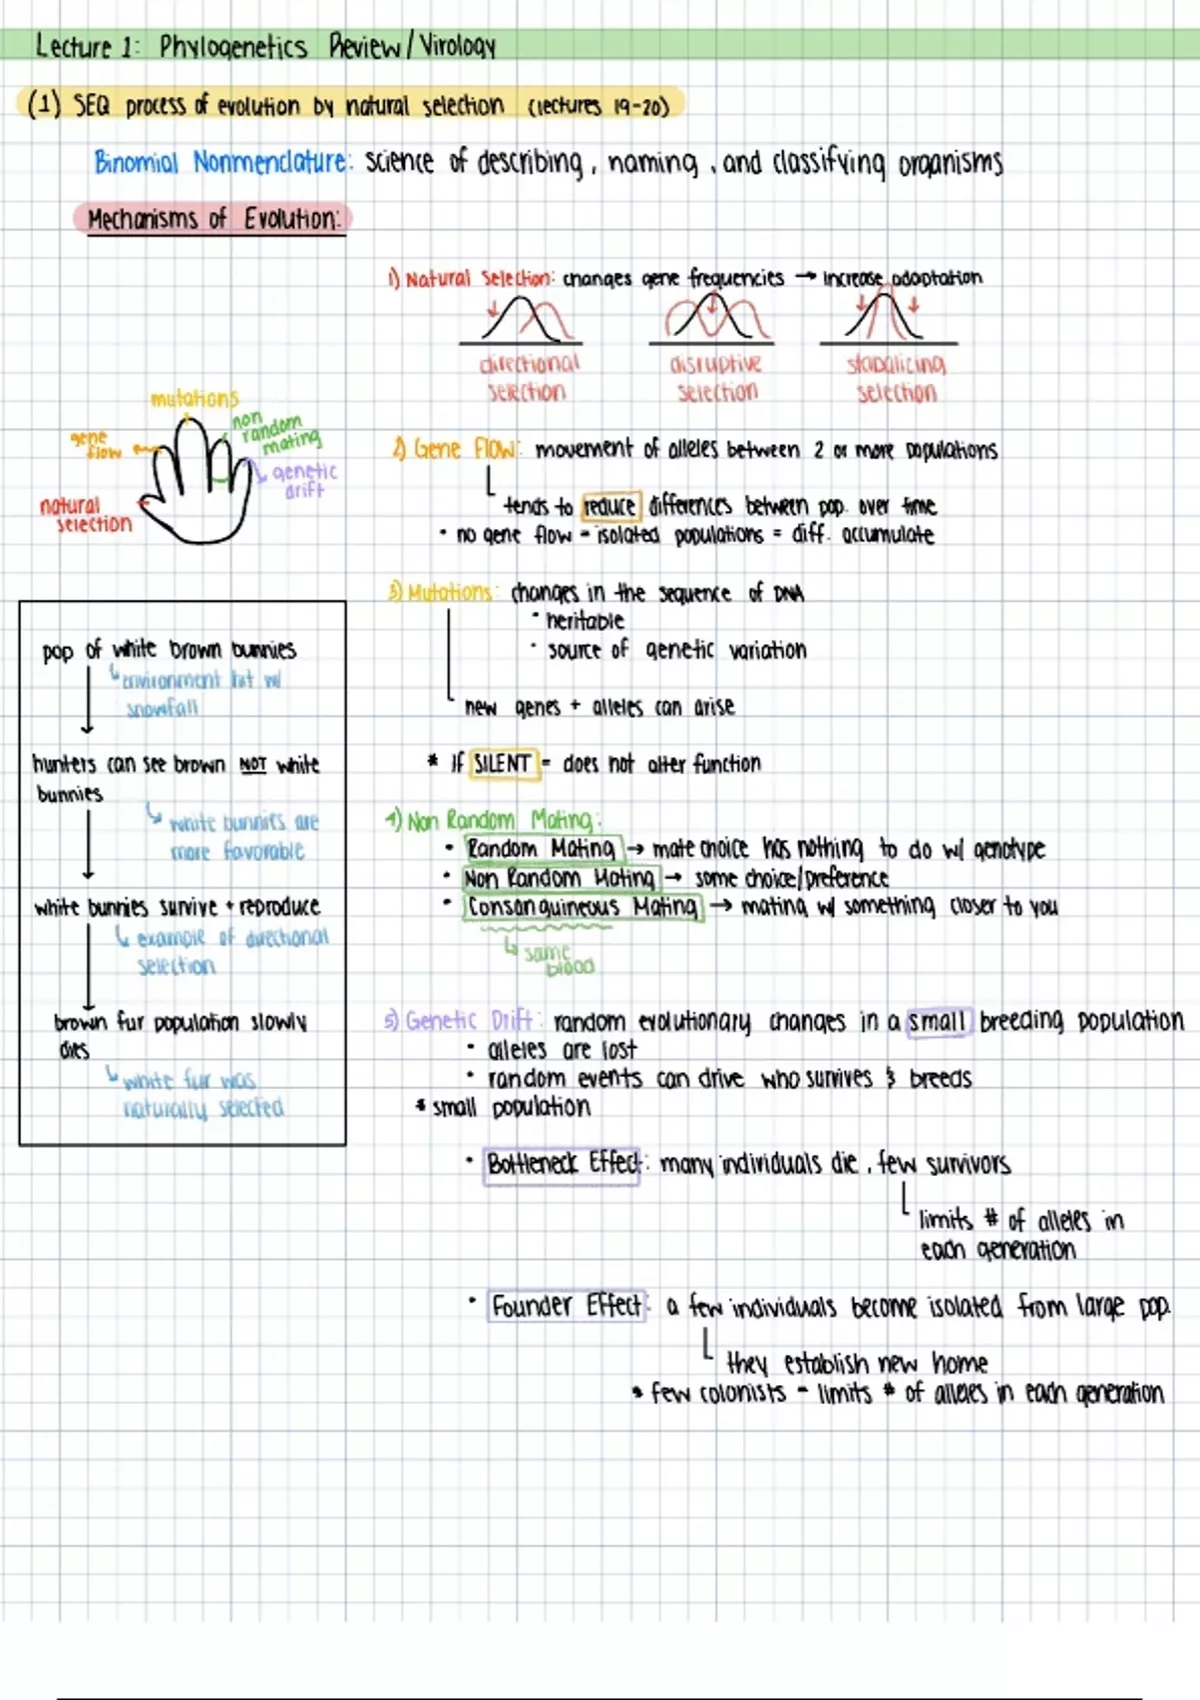 Lecture 1: Phylogenetics Review/Virology
(1) SEQ process of evolution by natural selection (lectures 19-20)
Binomial Nonmenclature: science of describing, naming, and classifying organisms
Mechanisms of Evolution:
1) Natural Selection: changes gene frequencies → increase adaptation
directional selection
disruptive selection
stabalicing selection
mutations
gene flow
non random mating
genetic drift
natural selection
2) Gene Flow: movement of alleles between 2 or more populations
tends to reduce differences between pop. over time
• no gene flow = isolated populations = diff. accumulate
3) Mutations: changes in the sequence of DNA
• heritable
• source of genetic variation
new genes + alleles can arise
* If SILENT = does not alter function
4) Non Random Mating:
• Random Mating → mate choice has nothing to do w/ genotype
• Non Random Mating → some choice/preference
• Consanguineous Mating → mating w/ something closer to you
same blood
5) Genetic Drift: random evolutionary changes in a small breeding population
• alleles are lost
• random events can drive who survives & breeds
* small population
• Bottleneck Effect: many individuals die, few survivors
limits # of alleles in
each generation
• Founder Effect: a few individuals become isolated from large pop.
they establish new home
* few colonists - limits # of alleles in each generation
pop of white brown bunnies
environment hit w/
snowfall
hunters can see brown NOT white
bunnies
white bunnies are
more favorable
white bunnies survive + reproduce
example of directional
selection
brown fur population slowly
dies
white fur was
naturally selected